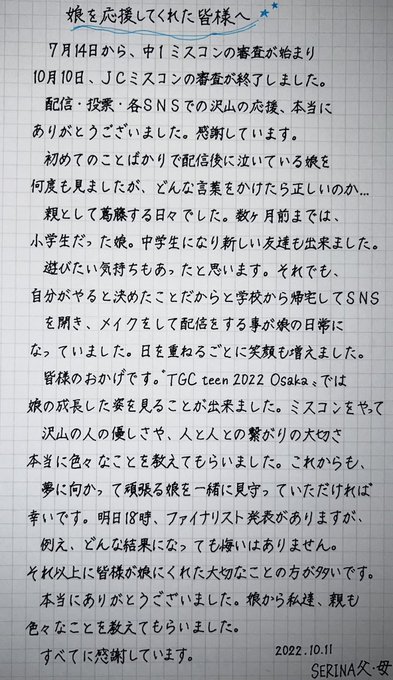 娘を応援してくれた皆様へ
7月14日から、中1ミスコンの審査が始まり
10月10日、JCミスコンの審査が終了しました。
配信・投票・各SNSでの沢山の応援、本当に
ありがとうございました。感謝しています。
初めてのことばかりで配信後に泣いている娘を
何度も見ましたが、どんな言葉をかけたら正しいのか…
親として葛藤する日々でした。数ヶ月前までは、
小学生だった娘。中学生になり新しい友達も出来ました。
遊びたい気持ちもあったと思います。それでも、
自分がやると決めたことだからと学校から帰宅してSNS
を開き、メイクをして配信をする事が娘の日常に
なっていました。日を重ねるごとに笑顔も増えました。
皆様のおかげです。〝TGC teen 2022 Osaka〟では
娘の成長した姿を見ることが出来ました。ミスコンをやって
沢山の人の優しさや、人と人との繋がりの大切さ
本当に色々なことを教えてもらいました。これからも、
夢に向かって頑張る娘を一緒に見守っていただければ
幸いです。明日18時、ファイナリスト発表がありますが、
例え、どんな結果になっても悔いはありません。
それ以上に皆様が娘にくれた大切なことの方が多いです。
本当にありがとうございました。娘から私達、親も
色々なことを教えてもらいました。
すべてに感謝しています。
2022.10.11
SERINA父・母